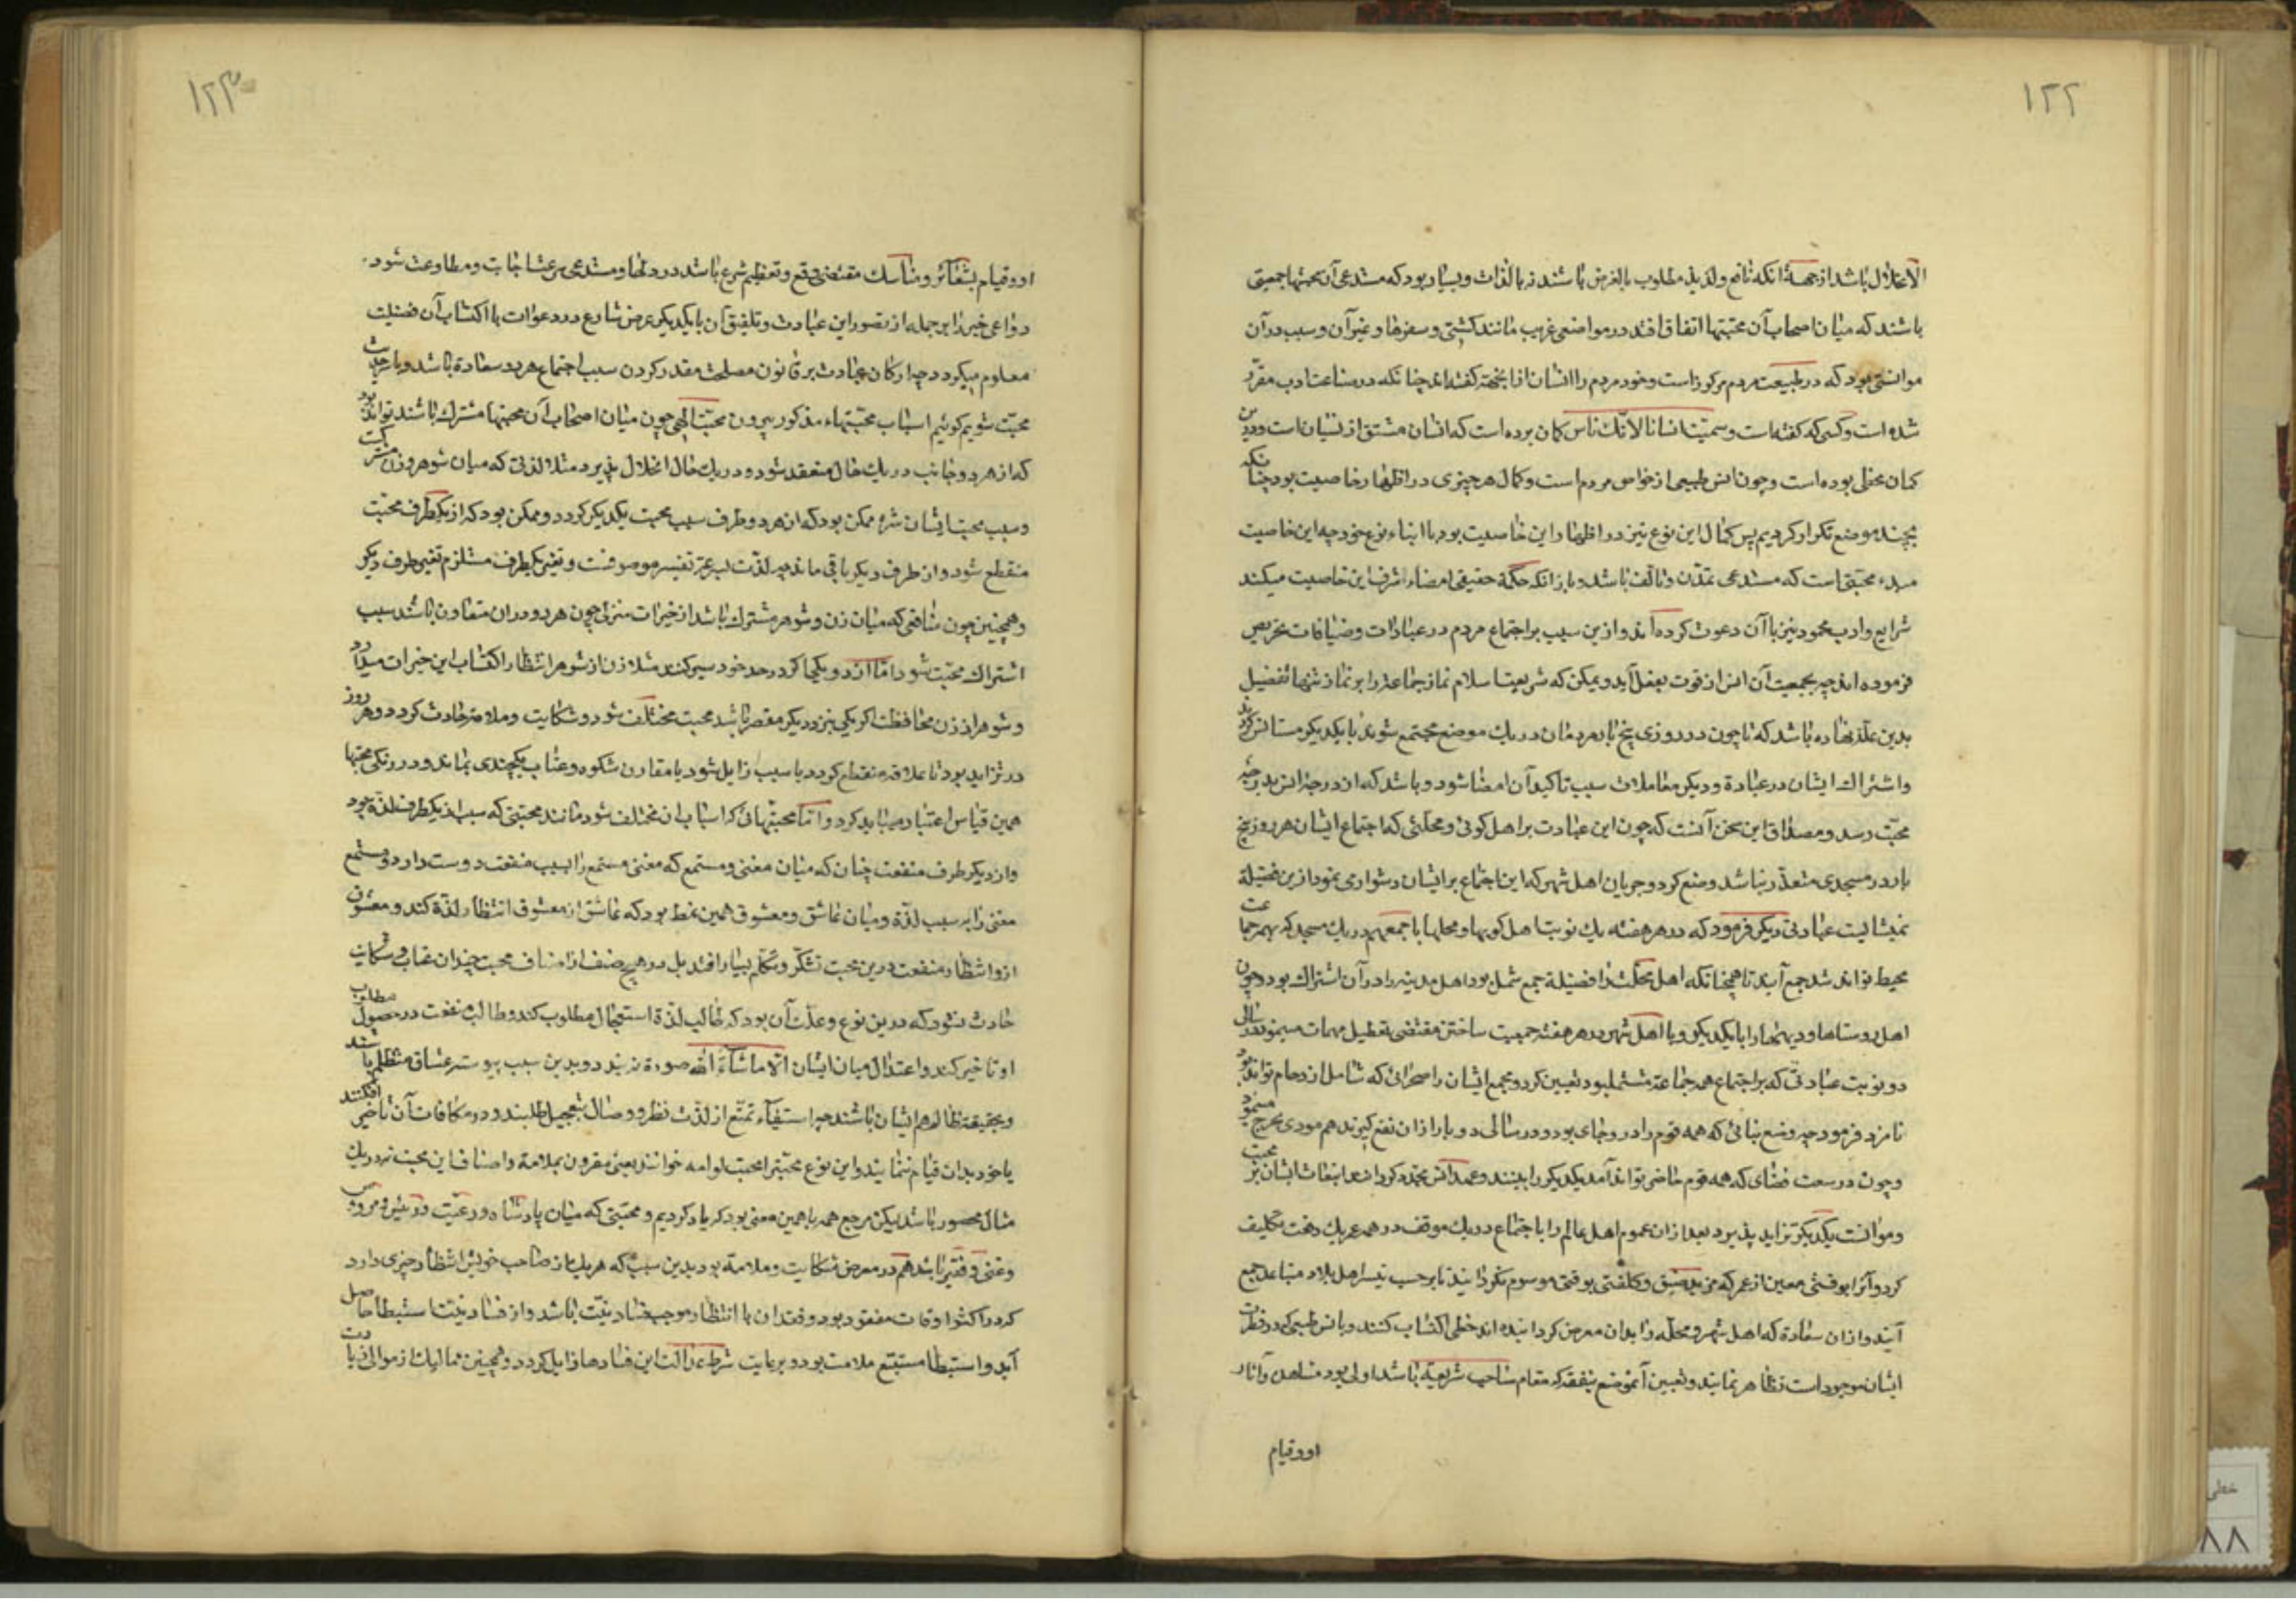 ۱۲۲
الانحلال باشد از جهة انکه نافع ولذیذ مطلوب بالعرض باشند نه بالذات وبسیار بود که مستدعی آن محبتها جمعیتی
باشند که میان اصحاب آن محبتها اتفاق افتد در مواضعی غریب مانند کشتی وسفرها وغیر آن وسبب در آن
موانستی بود که در طبیعت مردم مرکوز است وخود مردم را انسان ازا نجهة کفته‌اند چنانکه در صناعت ادب مقرر
شده است وکسی که کفته است وسمیت انسانا لانک ناس کمان برده است که انسان مشتق از نسیان است ودرین
کمان مخطی بوده است وچون انس طبیعی از خواص مردم است وکمال هر چیزی در اظهار خاصیت بود چنانکه
بچند موضع تکرار کردیم پس کمال این نوع نیز در اظهار این خاصیت بود با ابناء نوع خود چه این خاصیت
مبدء محبتی است که مستدعی تمدن وتالف باشد وباز انکه حکمة حقیقی امضاء شرف این خاصیت میکند
شرایع وادب محمود نیز با آن دعوت کرده‌اند وازین سبب بر اجتماع مردم در عبادات وضیافات تحریص
فرموده اند چه بجمعیت آن انس از قوت بفعل آید ویمکن که شریعت اسلام نماز جماعة را بر نماز تنها تفضیل
بدین علة نهاده باشد که تا چون در روزی پنج بار مردمان در یک موضع مجتمع شوند با یکدیکر مستانس کردند
واشتراک ایشان در عبادة ودیکر معاملات سبب تاکید آن امضا شود وباشد که از درجه انس بدرجه
محبت رسد ومصداق این سخن آنست که چون این عبادت بر اهل کوئی ومحلتی که اجتماع ایشان هر روز پنج
بار در مسجدی متعذر نباشد وضع کرد وحرمان اهل شهر که این اجتماع بر ایشان دشوار می نمود ازین فضیلة
نمیشایست عبادتی دیکر فرمود که در هر هفته یک نوبت اهل کویها ومحلها باجمعهم در یک مسجد که بهمه جماعت
محیط تواند شد جمع آیند تا همچنانکه اهل محلت را فضیلة جمع شمل بود اهل مدینه را در آن اشتراک بود وچون
اهل روستاها ودیهها را با یکدیکر وبا اهل شهر در هر هفته جمعیت ساختن مقتضی تعطیل مهمات مینمود در سالی
دو نوبت عبادتی که بر اجتماع همه جماعة مشتمل بود تعیین کرد ومجمع ایشان را صحرائی که شامل ازدحام تواند بود
نامزد فرمود چه وضع بنائی که همه قوم را درو جای بود ودر سالی دو بار ازان نفع کیرند هم مودی بحرج مینمود
وچون در سعت فضای که همه قوم حاضر تواند آمد یکدیکر را ببینند وعهد انس مجدد کردانند انبعاث ایشان بر محبت
وموانست یکدیکر تزاید پذیرد بعد ازان عموم اهل عالم را با اجتماع در یک موقف در همه عمر یک دفعت تکلیف
کرد وآنرا بوقتی معین از عمر که مزید ضیق وکلفتی بو قتی موسوم نکردانید تا بر حسب تیسر اهل بلاد متباعد جمع
آیند وازان سعادة که اهل شهر ومحله را بدان معرض کردانیده اند حظی اکتساب کنند وبانس طبیعی که در فطرت
ایشان موجود است تظاهر نمایند وتعیین آنموضع ببقعه که مقام صاحب شریعة باشد اولی بود مشاهده آثار
او وقیام
۱۲۳
او وقیام بشعائر ومناسک مقتضی وقع وتعظیم شرع باشد در دلها ومستدعی سرعت اجابت ومطاوعت شود
دواعی خیر را بر جمله از تصور این عبادت وتلفیق آن با یکدیکر غرض شارع در دعوات با اکتساب آن فضیلت
معلوم میکردد چه ارکان عبادت بر قانون مصلحت مقدر کردن سبب اجتماع هر دو سعادة باشد وبا حدیث
محبت شویم کوئیم اسباب محبتهاء مذکور بیرون محبت الهی چون میان اصحاب آن محبتها مشترک باشند تواند بود
که از هر دو جانب در یک حال منعقد شود ودر یک حال انحلال پذیرد مثلا لذتی که میان شوهر وزن مشترکست
وسبب محبت ایشان شده ممکن بود که از هر دو طرف سبب محبت یکدیکر کردد وممکن بود که از یکطرف محبت
منقطع شود واز طرف دیکر باقی ماند چه لذت بسرعة تغیر موصوفست وتغیر یکطرف مستلزم تغیر طرف دیکر
وهمچنین چون منافعی که میان زن وشوهر مشترک باشد از خیرات منزلی چون هر دو دران متعاون باشند سبب
اشتراک محبت شود اما ازان دو یکی اکر در حد خود سیر کند مثلا زن از شوهر انتظار اکتساب این خیرات میدارد
وشوهر از زن محافظت اکر یکی بنزدیکر مقصر باشد محبت مختلف شود وشکایت وملامت حادث کردد وهر روز
در تزاید بود تا علاقه منقطع کردد یا سبب زایل شود یا مقارن شکوه وعتاب یکچندی بماند ودر دیکر محبتها
همین قیاس اعتبار میباید کرد واما محبتهائی که اسباب ان مختلف شود مانند محبتی که سبب از یکطرف لذة بود
واز دیکر طرف منفعت چنان که میان مغنی ومستمع که مغنی مستمع را بسبب منفعت دوست دارد ومستمع
مغنی را بر سبب لذة ومیان عاشق ومعشوق همین نمط بود که عاشق از معشوق انتظار لذة کند ومعشوق
ازو انتظار منفعت ودرین محبت تشکر وتظلم بسیار افتد بل در هیچ صنف از اصناف محبت چندان عتاب وشکایت
حادث نشود که درین نوع وعلت آن بود که طالب لذة استعجال مطلوب کند وطالب منفعت در حصول مطلوب
او تاخیر کند واعتدال میان ایشان الا ماشاء الله صورة نه بندد وبدین سبب پیوسته عشاق متظلم باشند
وبحقیقة ظالم هم ایشان باشند چه استیفاء تمتع از لذت نظر ووصال بتعجیل طلبند ودر مکافات آن تاخیر افکنند
یا خود بدان قیام ننمایند واین نوع محبترا محبت لوامه خوانند یعنی مقرون بملامة واصناف این محبت نه در یک
مثال محصور باشد لیکن مرجع همه با همین معنی بود که یاد کردیم ومحبتی که میان پادشاه ورعیت ورئیس ومرؤس
وغنی وفقیر باشد هم در معرض شکایت وملامة بود بدین سبب که هر یک از صاحب خویش انتظار چیزی دارد
که در اکثر اوقات مفقود بود وفقدان با انتظار موجب فساد نیت باشد واز فساد نیت استبطاء حاصل
آید واستبطا مستتبع ملامت بود وبرعایت شرط عدالت این فسادها زایل کردد وهمچنین ممالیک از موالی زیادت
خطی
۸۸